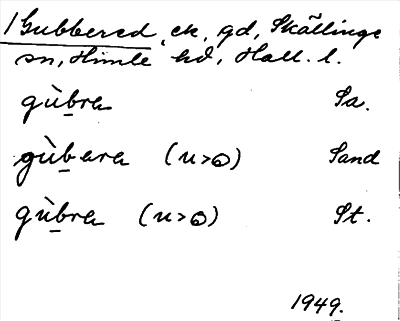 1 Gubbered, ek, gd, Skällinge
sn, Himle hd, Hall. l.
gu̇̀b̲ra Sa.
gu̇̀b̲ara (u>o) Sand
gu̇̀b̲ra (u>o) St.
1949.